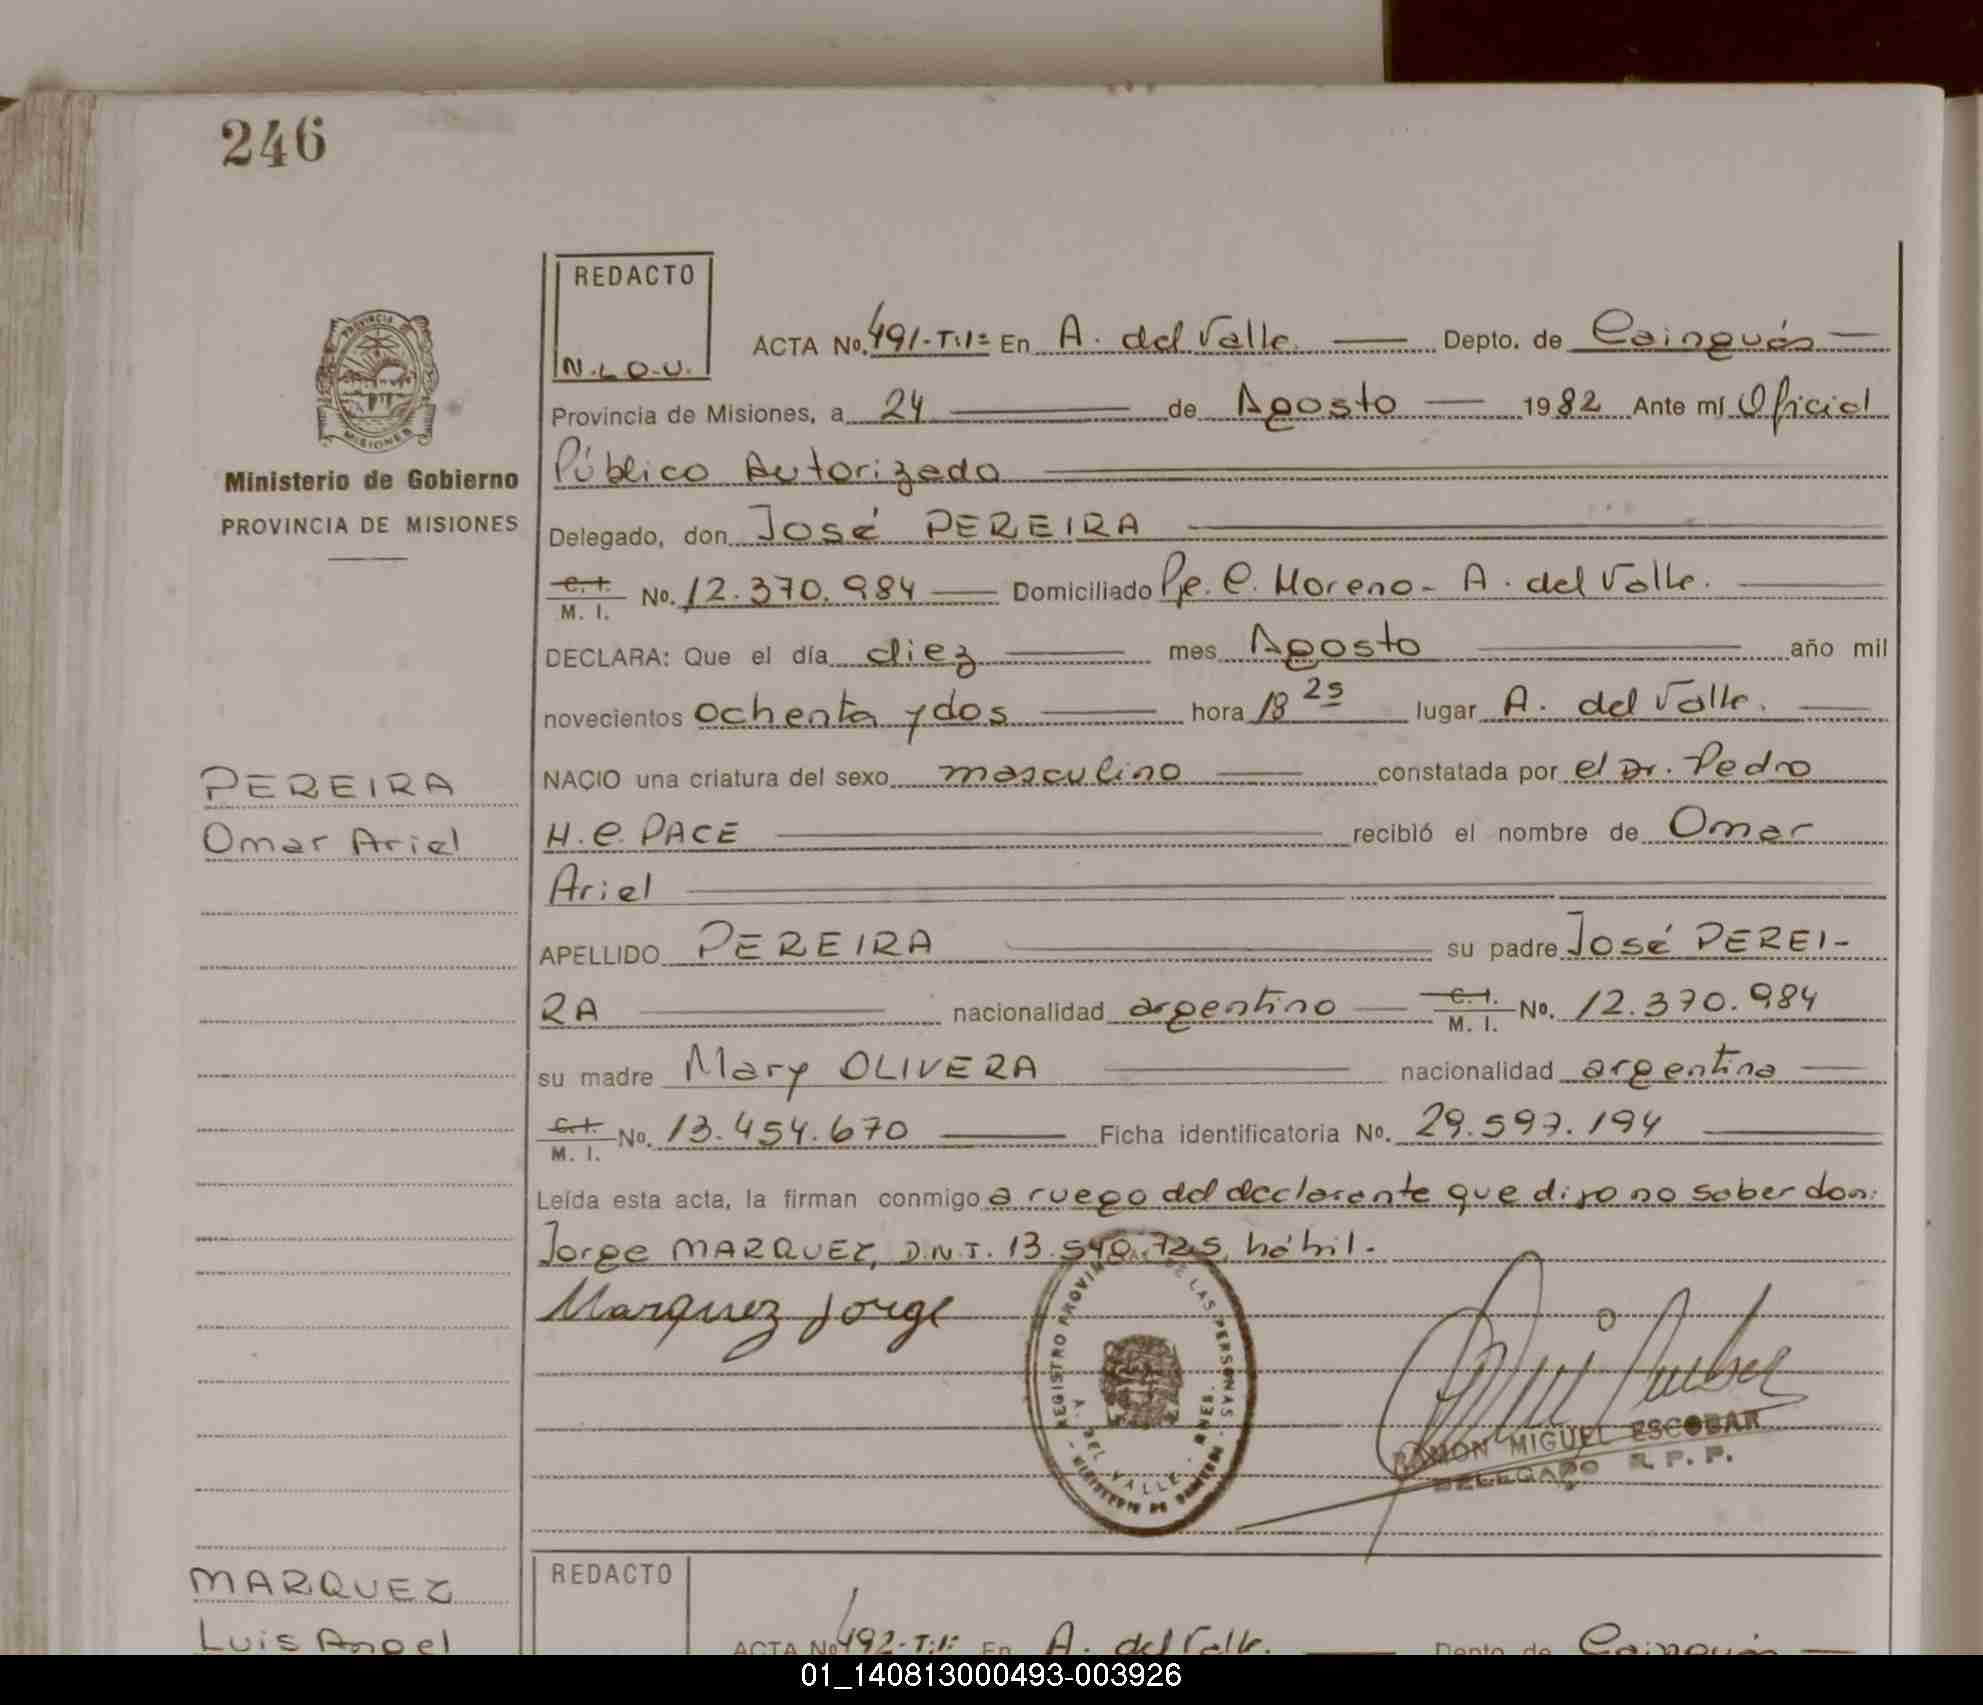 246
REDACTO
N.L.O.U.
ACTA No. 491-T:1º En A. del Valle. Depto. de Cainguás
Provincia de Misiones, a 24 de Agosto 1982 Ante mí Oficial
Público Autorizado
Delegado, don José PEREIRA
C. I. M. I. No. 12.370.984 Domiciliado Pje. C. Moreno - A. del Valle.
DECLARA: Que el día diez mes Agosto año mil
novecientos ochenta y dos hora 18 25 lugar A. del Valle.
NACIO una criatura del sexo masculino constatada por el Dr. Pedro
H. C. PACE recibió el nombre de Omar
Ariel
APELLIDO PEREIRA su padre José PEREI-
RA nacionalidad argentino C. I. M. I. No. 12.370.984
su madre Mary OLIVERA nacionalidad argentina
C. I. M. I. No. 13.454.670 Ficha identificatoria No. 29.597.194
Leída esta acta, la firman conmigo a ruego del declarante que dijo no saber don:
Jorge MARQUEZ, D.N.I. 13.540.725, hábil.-
Marquez Jorge
PROVINCIA DE
MISIONES
Ministerio de Gobierno
PROVINCIA DE MISIONES
PEREIRA
Omar Ariel
REGISTRO PROVINCIAL DE LAS PERSONAS
A. DEL VALLE - MNES.
RAMON MIGUEL ESCOBAR
DELEGADO R. P. P.
MARQUEZ
Luis Angel
REDACTO
ACTA No 492-T:1º En A. del Valle. Depto de Cainguás
01_140813000493-003926